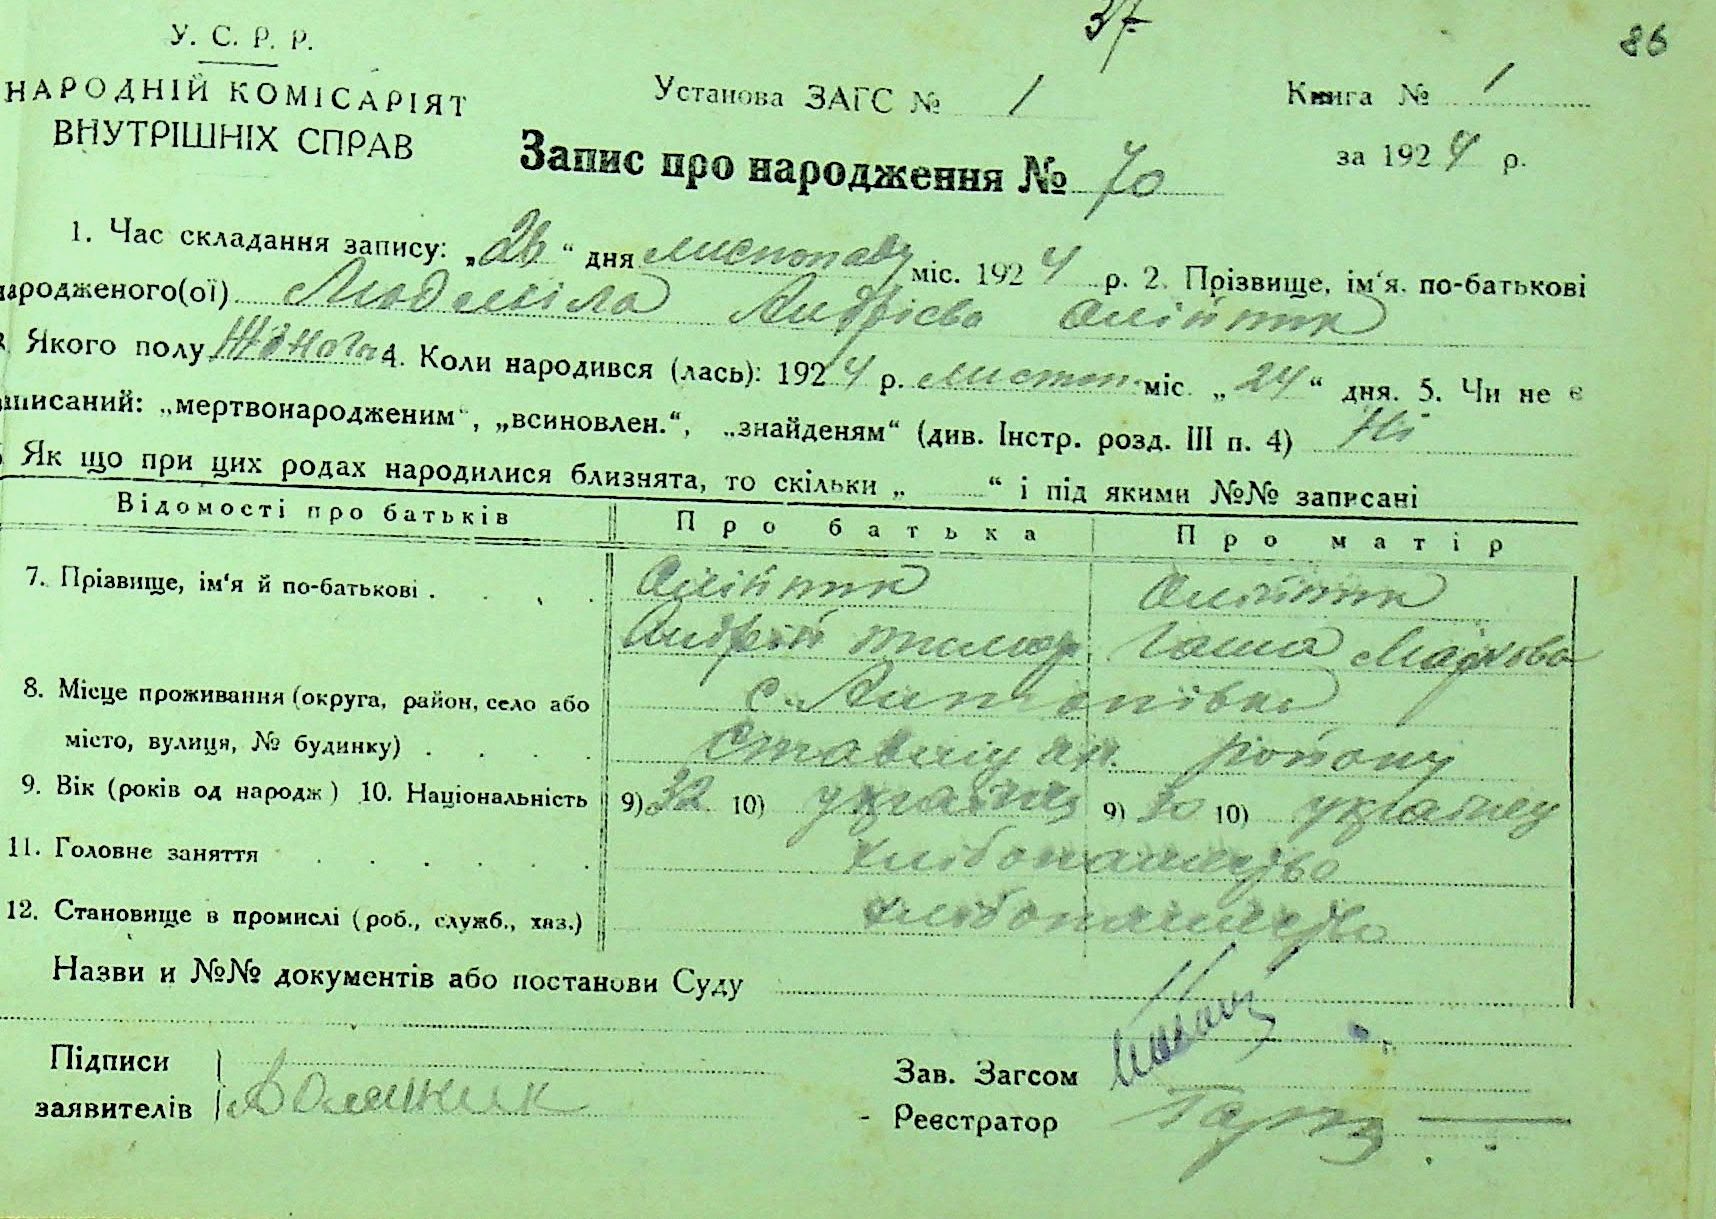 37
86
У. С. Р. Р.
НАРОДНІЙ КОМІСАРІЯТ
ВНУТРІШНІХ СПРАВ
Установа ЗАГС № 1
Книга № 1
за 1924 р.
Запис про народження № 70
1. Час складання запису: „26“ дня листопаду міс. 1924 р. 2. Прізвище, ім'я, по-батькові
народженого(ої) Людміла Андрієва Олійник
Якого полу Жіного 4. Коли народився (лась): 1924 р. листоп. міс. „24“ дня. 5. Чи не є
записаний: „мертвонародженим“, „всиновлен.“, „знайденям“ (див. Інстр. розд. III п. 4) Ні
Як що при цих родах народилися близнята, то скільки „ “ і під якими №№ записані
Відомості про батьків Про батька Про матір
7. Прізвище, ім'я й по-батькові . Олійник Олійник
Андрій Гаша Маркова
8. Місце проживання (округа, район, село або с. Антонівка
місто, вулиця, № будинку) . Ставищан. району
9. Вік (років од народж) 10. Національність 9) 32 10) 9) 30 10)
11. Головне заняття
12. Становище в промислі (роб., служб., хаз.)
Назви и №№ документів або постанови Суду
Підписи
заявителів
Зав. Загсом
Реєстратор